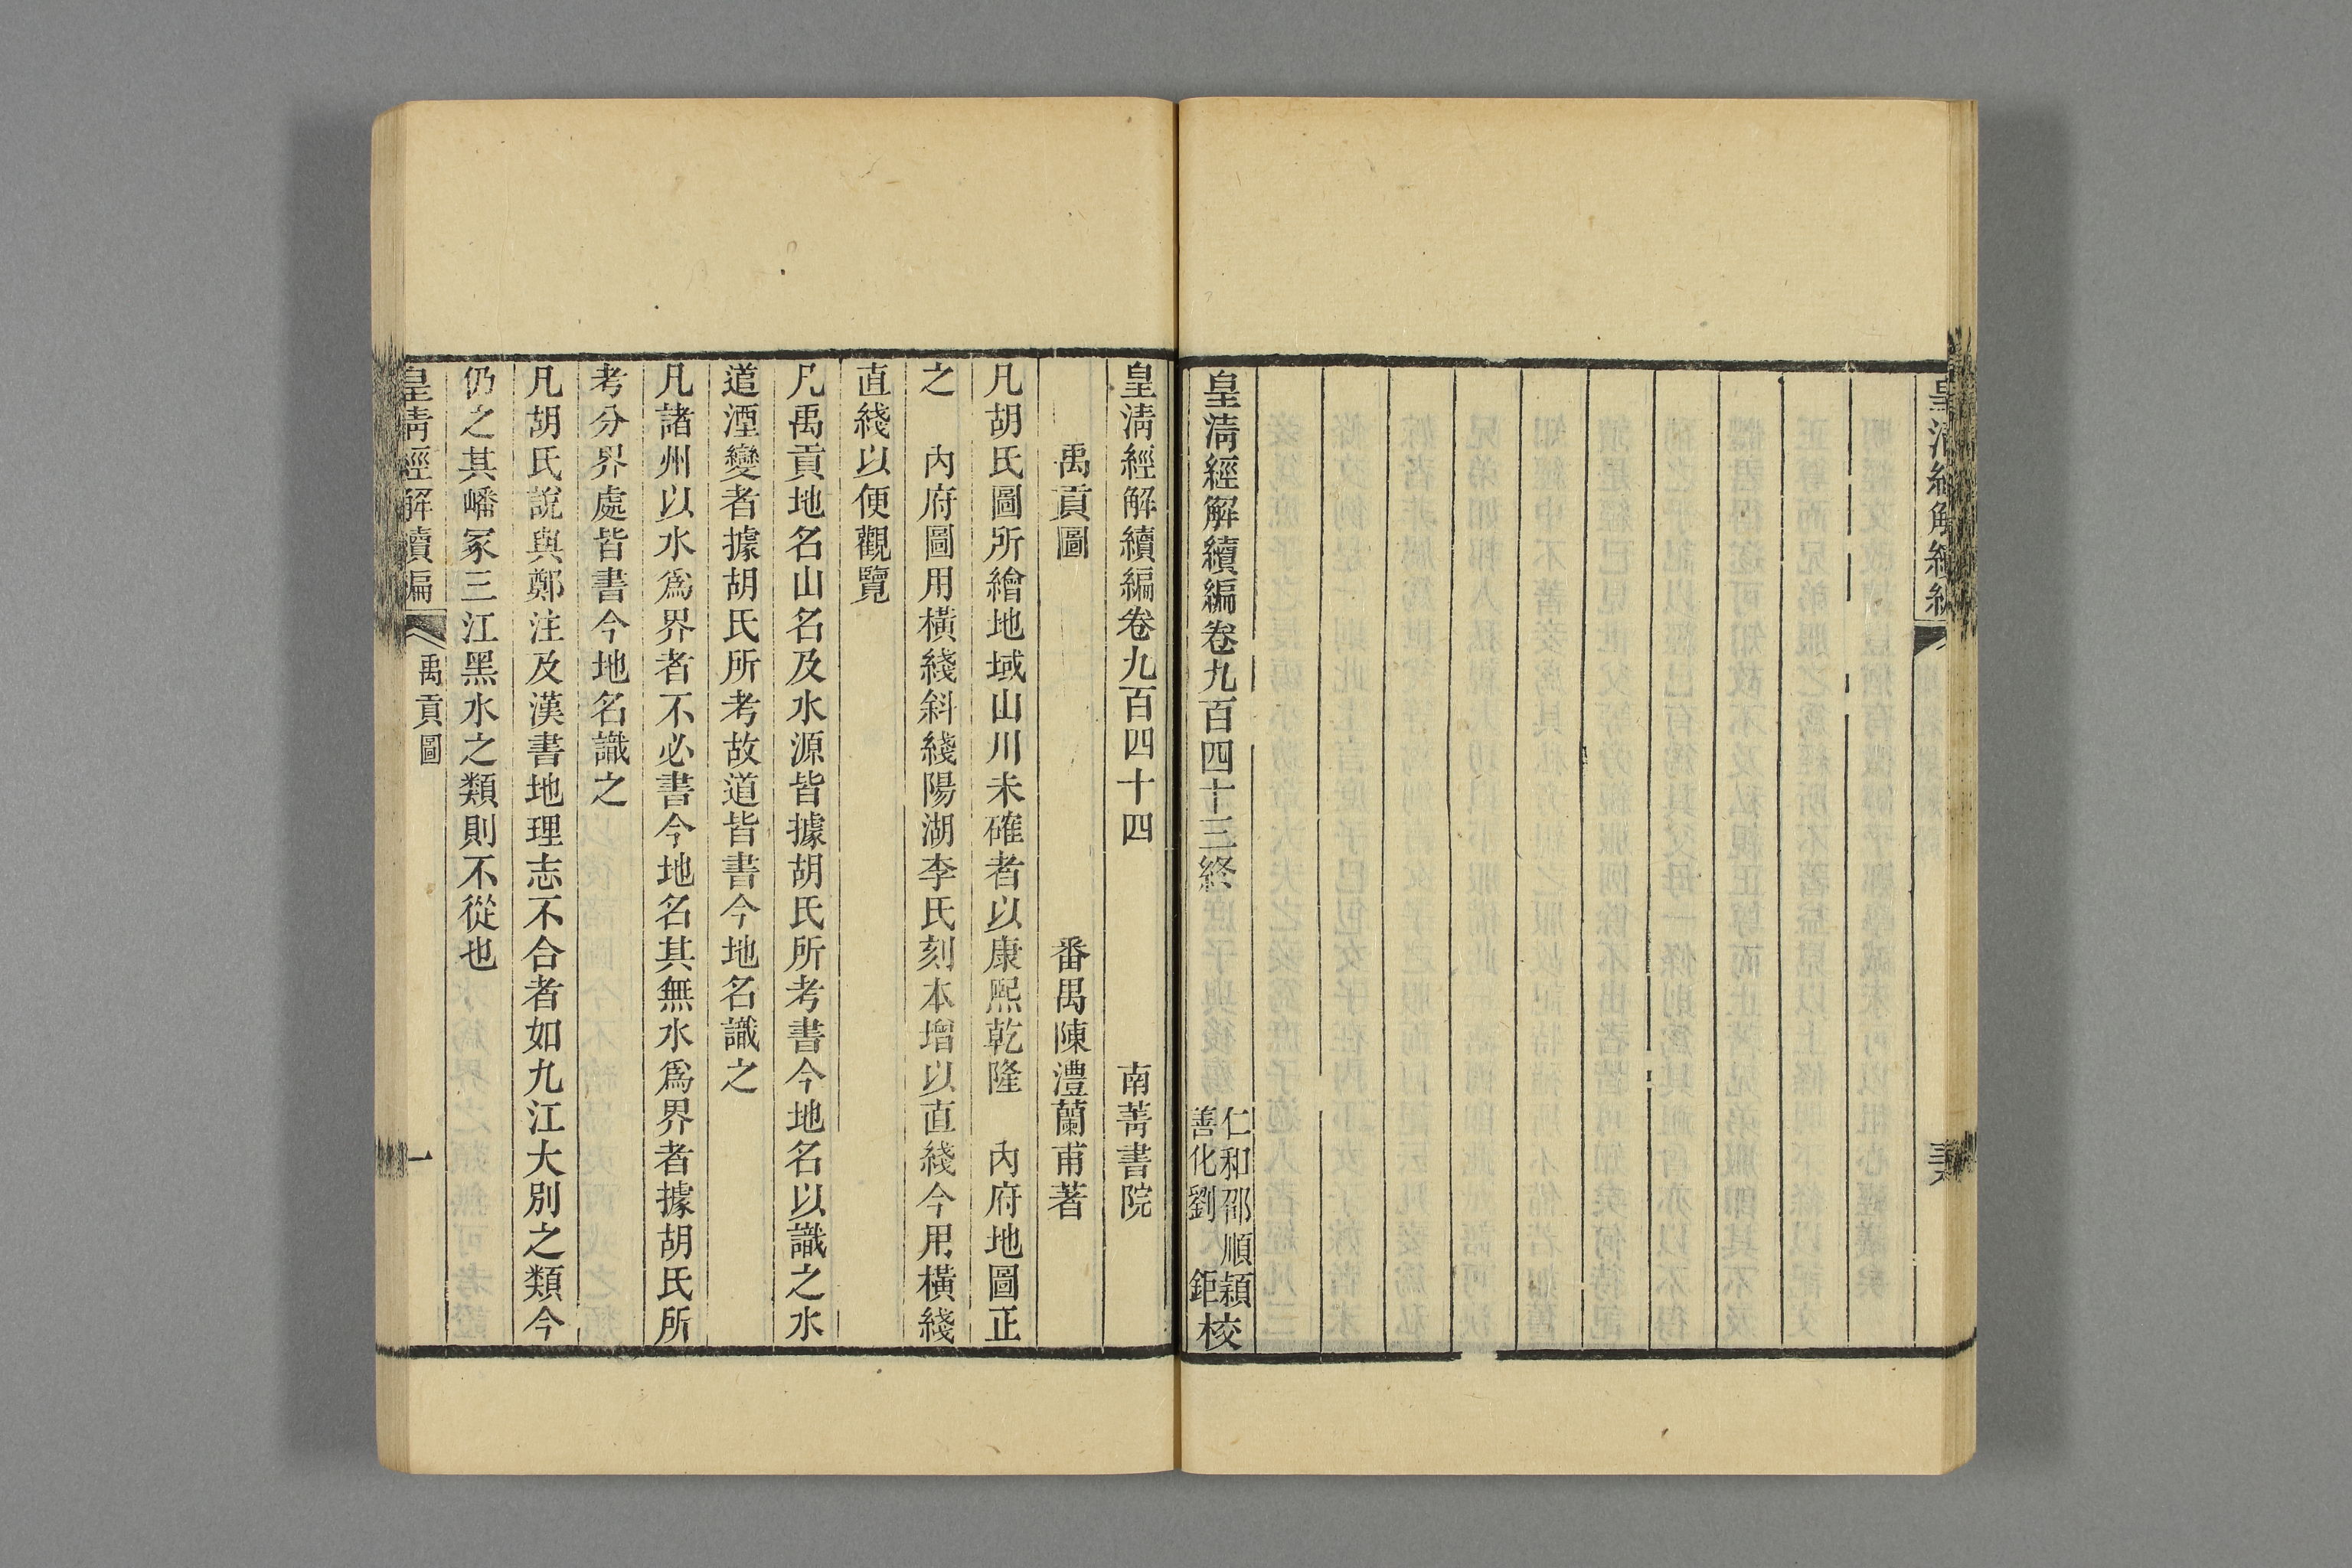 皇清經解續編卷九百四十三終
仁和邵順穎
善化劉鉅校
皇清經解續編卷九百四十四
南菁書院
禹貢圖
番禺陳澧蘭甫著
凡胡氏圖所繪地域山川未確者以康熙乾隆 內府地圖正
之 內府圖用橫綫斜綫陽湖李氏刻本增以直綫今用橫綫
直綫以便觀覽
凡禹貢地名山名及水源皆據胡氏所考書今地名以識之水
道湮變者據胡氏所考故道皆書今地名識之
凡諸州以水爲界者不必書今地名其無水爲界者據胡氏所
考分界處皆書今地名識之
凡胡氏說與鄭注及漢書地理志不合者如九江大別之類今
仍之其嶓冢三江黑水之類則不從也
皇清經解續編
禹貢圖
一